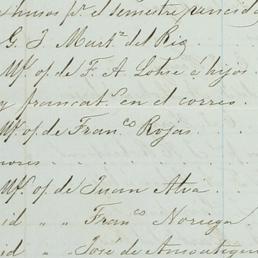 el semestre vencido
G. J. Mart.z del Rio
Mp. of. de F. A. Lohse é hijos
y francat.s en el correo.
Mp. of. de Fran.co Rojas
Mp. of. de Juan Alva
id " " Fran.co Noriega
id " " José de Amoategui